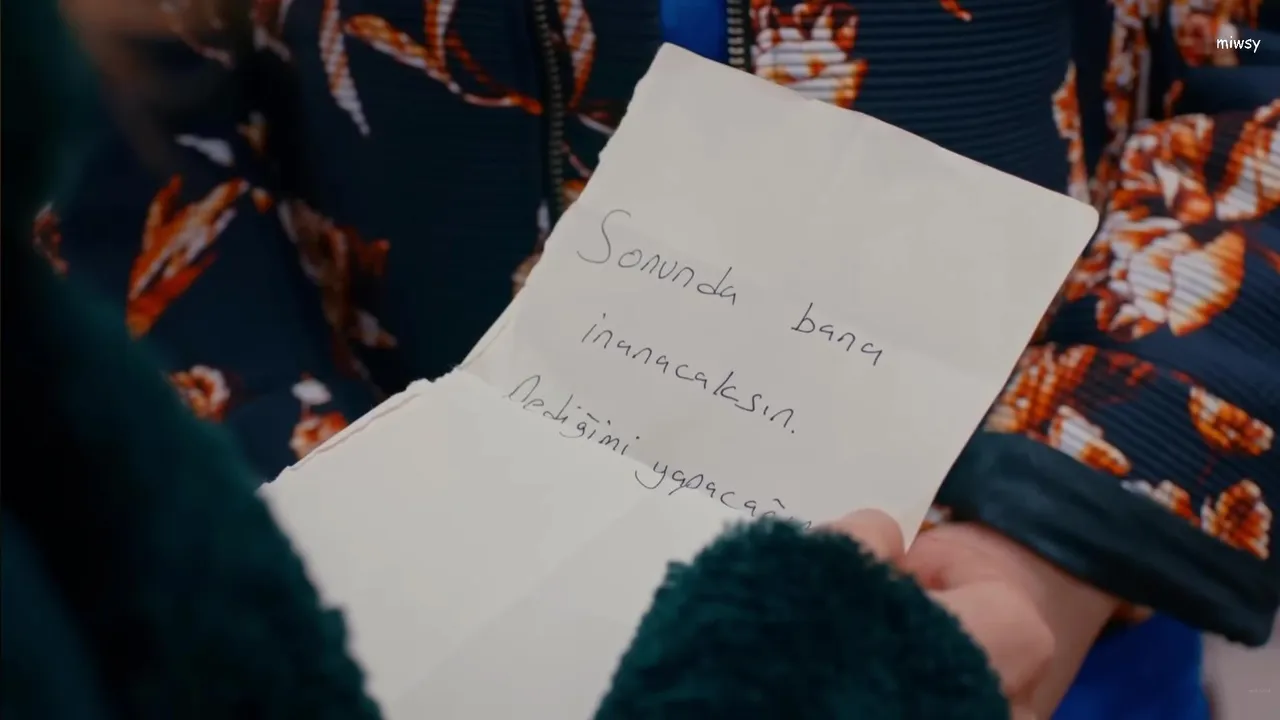 miwsy
Sonunda bana
inanacaksın.
Dediğimi